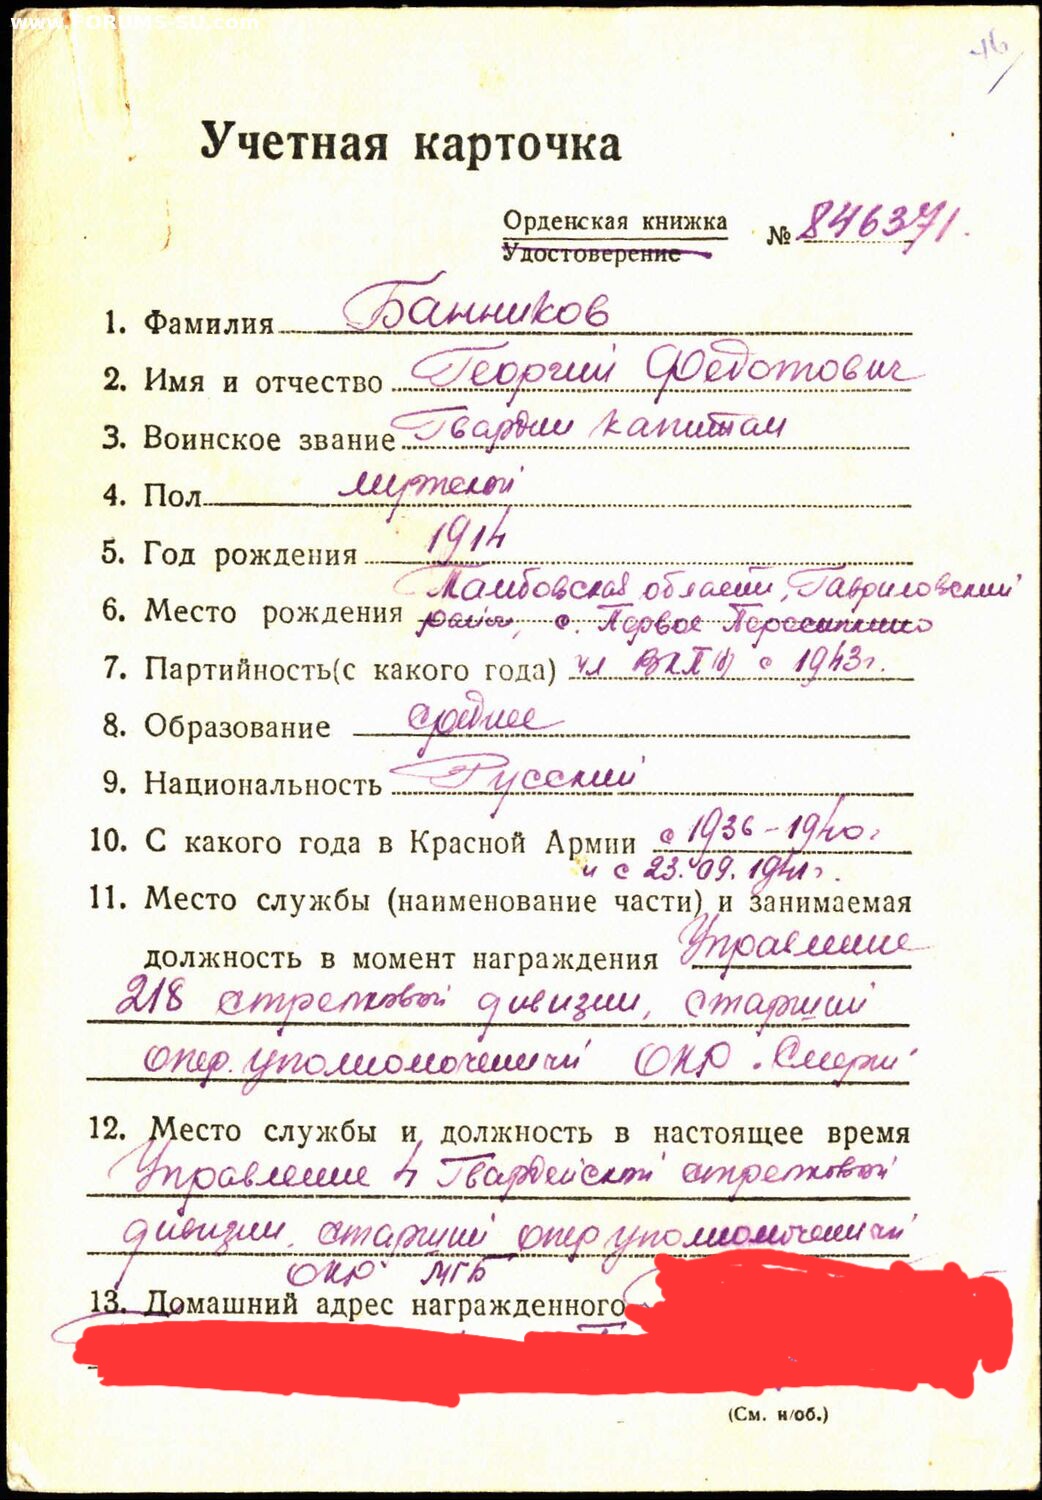 www.FORUMS-SU.com
16
Учетная карточка
Орденская книжка
Удостоверение
№ 846371.
1. Фамилия Банников
2. Имя и отчество Георгий Федотович
3. Воинское звание Гвардии капитан
4. Пол мужской
5. Год рождения 1914
Тамбовская области, Гавриловский
6. Место рождения район, с. Первое Пересыпкино
7. Партийность(с какого года) чл ВКП(б) с 1943г.
8. Образование среднее
9. Национальность Русский
10. С какого года в Красной Армии с 1936-1940г
и с 23.09.1941г.
11. Место службы (наименование части) и занимаемая
должность в момент награждения Управление
218 стрелковой дивизии, старший
опер. уполномоченный ОКР "Смерш"
12. Место службы и должность в настоящее время
Управление 4 Гвардейской стрелковой
дивизии, старший опер уполномоченный
ОКР МГБ
13. Домашний адрес награжденного
(См. н/об.)